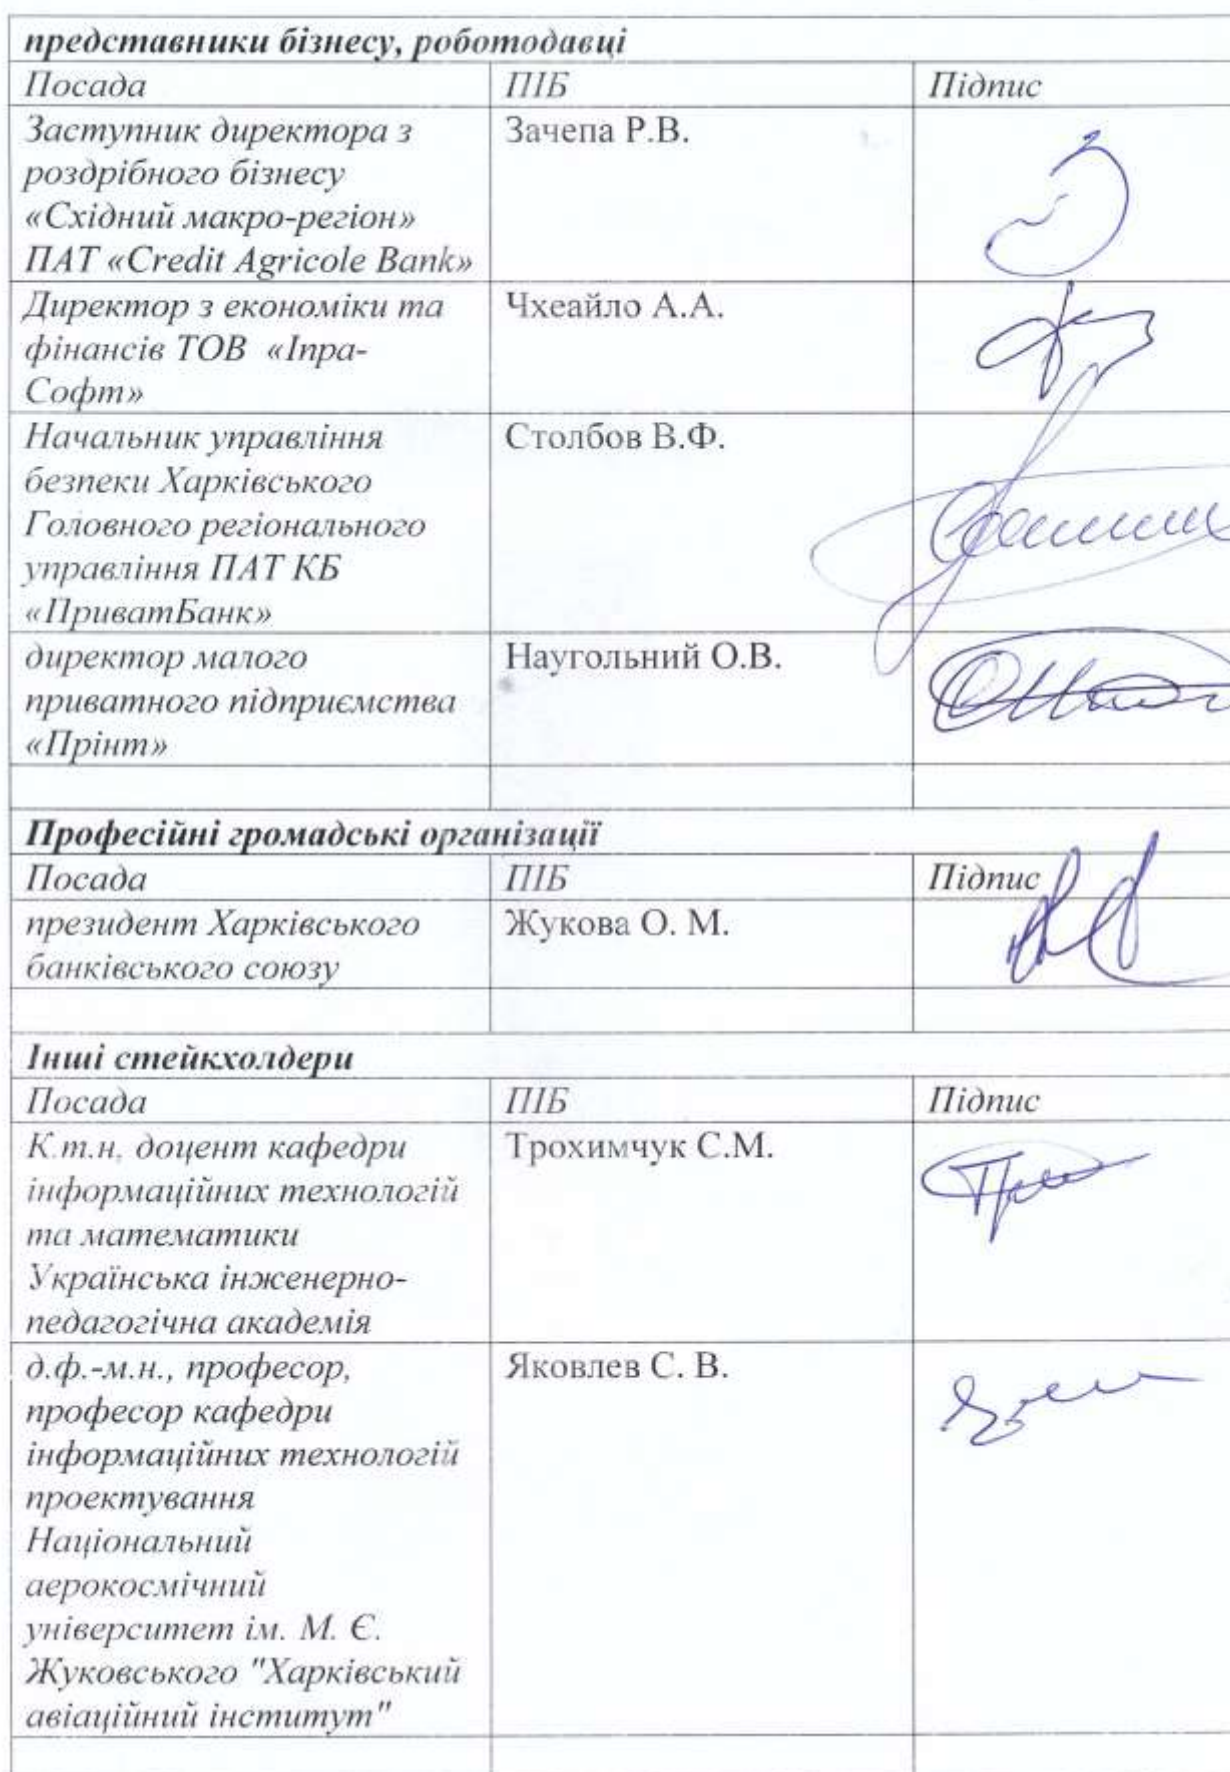 представники бізнесу, роботодавці
Посада ПІБ Підпис
Заступник директора з Зачепа Р.В.
роздрібного бізнесу
«Східний макро-регіон»
ПАТ «Credit Agricole Bank»
Директор з економіки та Чхеайло А.А.
фінансів ТОВ «Іпра-
Софт»
Начальник управління Столбов В.Ф.
безпеки Харківського
Головного регіонального
управління ПАТ КБ
«ПриватБанк»
директор малого Наугольний О.В.
приватного підприємства
«Прінт»
Професійні громадські організації
Посада ПІБ Підпис
президент Харківського Жукова О. М.
банківського союзу
Інші стейкхолдери
Посада ПІБ Підпис
К.т.н, доцент кафедри Трохимчук С.М.
інформаційних технологій
та математики
Українська інженерно-
педагогічна академія
д.ф.-м.н., професор, Яковлев С. В.
професор кафедри
інформаційних технологій
проектування
Національний
аерокосмічний
університет ім. М. Є.
Жуковського "Харківський
авіаційний інститут"